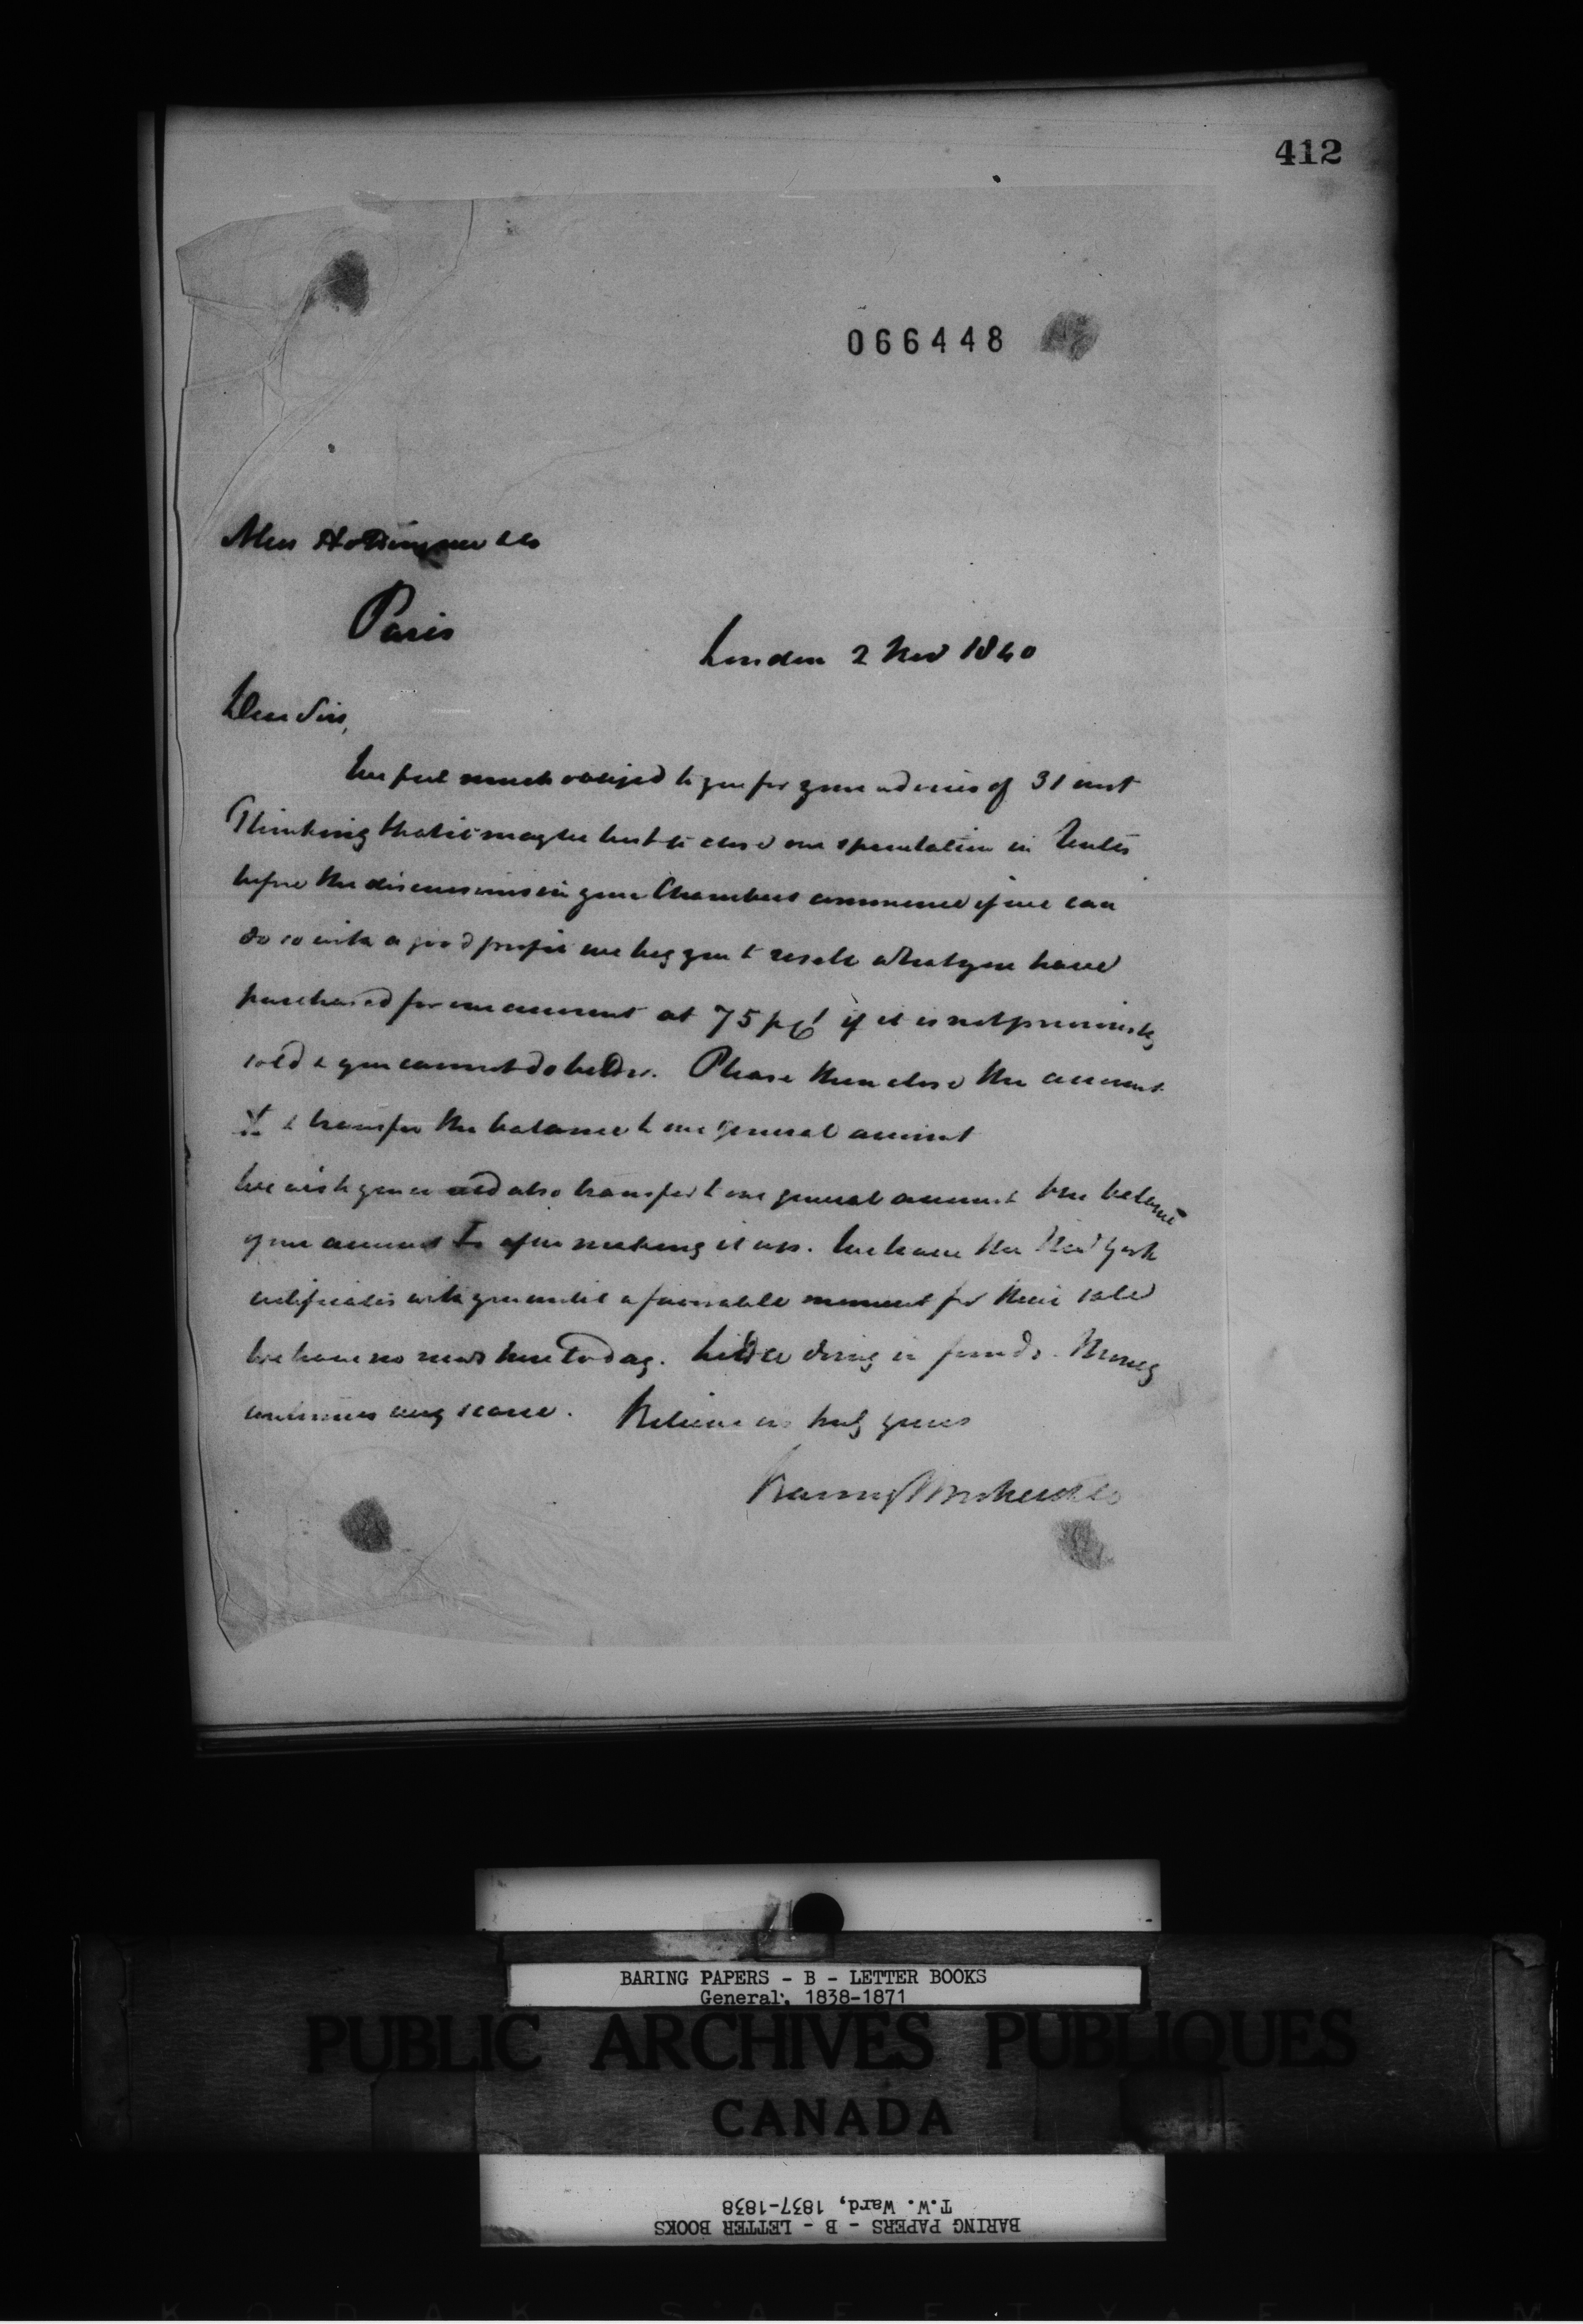 412
066448
Mess Hottinguer & Co
Paris
London 2 Nov 1840
Dear Sirs,
We feel much obliged to you for your advices of 31 inst
Thinking that it may be best to close our speculation in Rentes
before the discussions in your Chambers commence if we can
do so with a good profit we beg you to resell what you have
purchased for our account at 75 pCt if it is not previously
sold & you cannot do better. Please then close the account
X & transfer the balance to our general account
We wish you would also transfer to our general account the balance
your account after making it up. We leave the New York
certificates with you until a favorable moment for their sale
We have no news here today. Little doing in funds. Money
continues very scarce. Believe us truly yours
Baring Brothers & Co
BARING PAPERS - B - LETTER BOOKS
General, 1838-1871
PUBLIC ARCHIVES PUBLIQUES
CANADA
T.W. Ward, 1837-1838
BARING PAPERS - B - LETTER BOOKS
KODAK SAFETY FILM